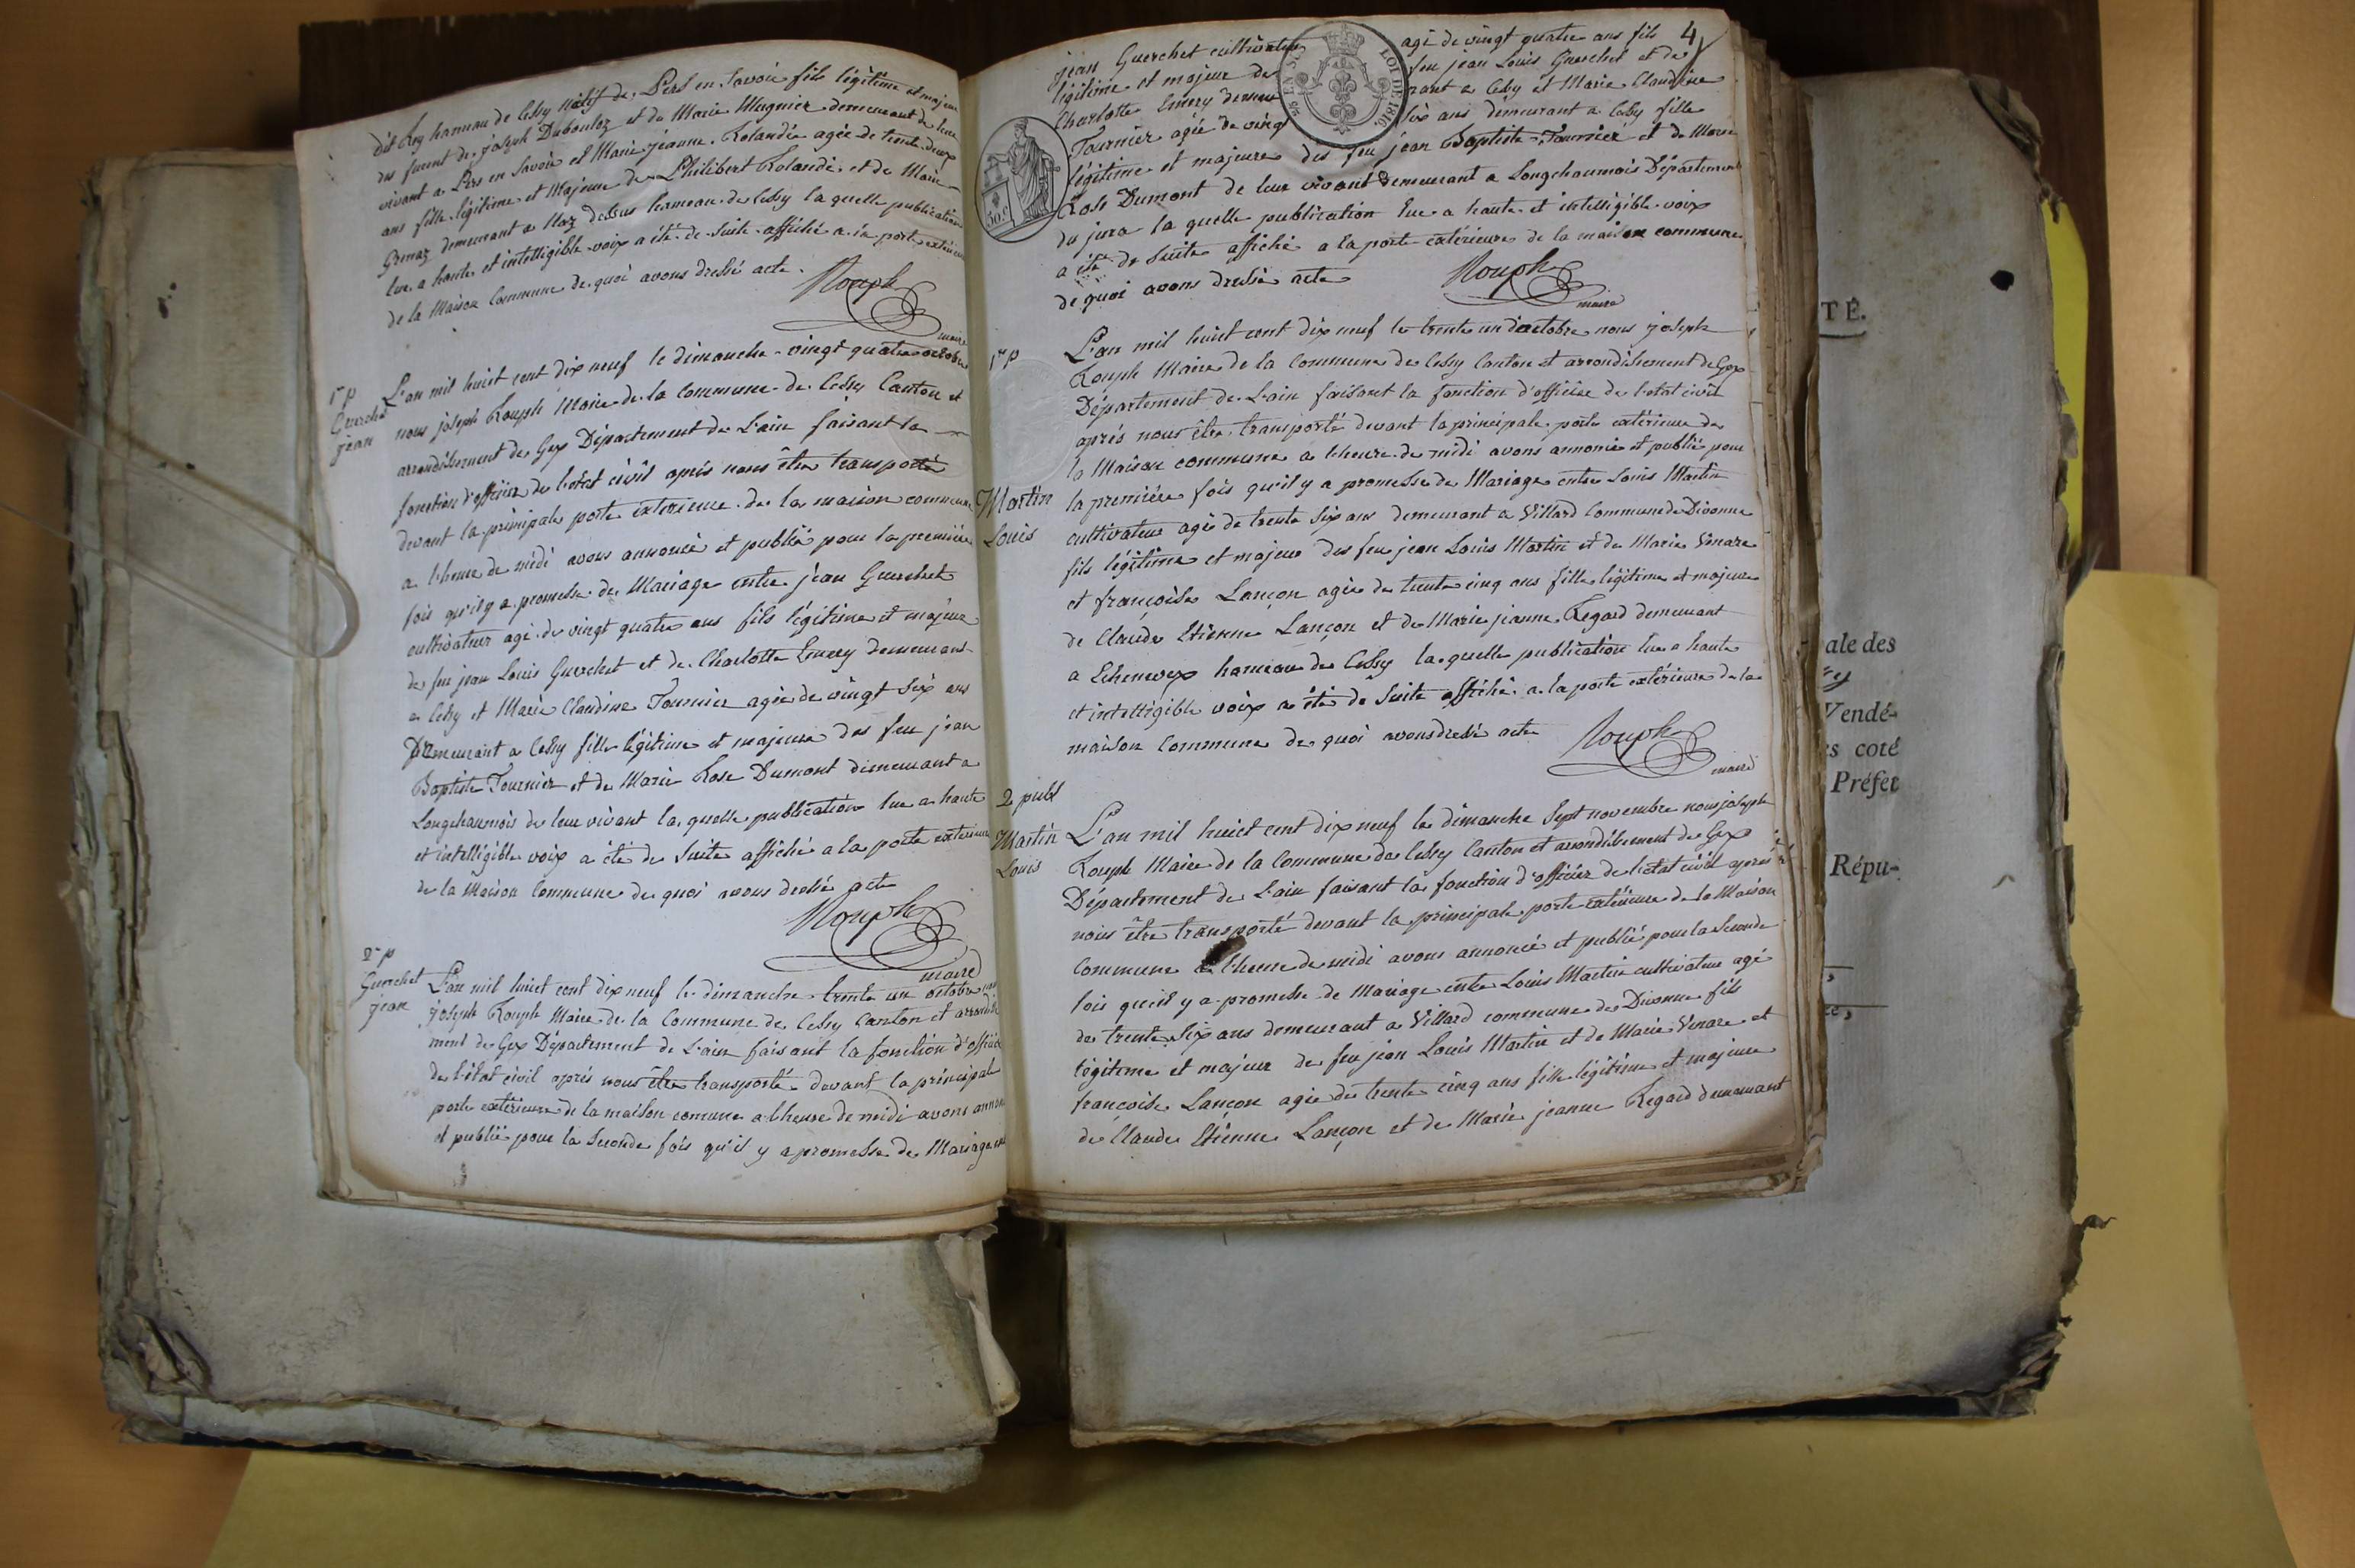 dit Roy hameau de Cessy Natif de Pers en Savoie fils légitime et majeur
des furent de joseph Dubouloz et de Marie Mugnier demeurant de leur
vivant a Pers en Savoie et Marie jeanne Rolandié agée de trente deux
ans fille légitime et Majeure de Philibert Rolandé et de Marie
Grenaz demeurant a Naz dessus hameau de Cessy la quelle publication
lue a haute et intelligible voix a été de suite affiché a la porte extérieure
de la Maison Commune de quoi avons dressé acte.
Rouph
maire
1re p
Guerchet
jean
L'an mil huict cent dix neuf le dimanche vingt quatre octobre
nous joseph Rouph Maire de la Commune de Cessy Canton et
arrondissement de Gex Département de L'ain faisant la
fonction d'officier de l'etat civil aprés nous être transporté
devant la principale porte extérieure de la maison commune
a l'heure de midi avons annoncé et publié pour la première
fois qu'il y a promesse de Mariage entre jean Guerchet
cultivateur agé de vingt quatre ans fils légitime et majeur
de feu jean Louis Guerchet et de Charlotte Emery demeurant
a Cessy et Marie Claudine Tournier agée de vingt six ans
Demeurant a Cessy fille légitime et majeure des feu jean
Baptiste Tournier et de Marie Rose Dumont demeurant a
Longchaumois de leur vivant la quelle publication lue a haute
et intelligible voix a été de suite affiché a la porte extérieure
de la Maison Commune de quoi avons dressé acte
Rouph
maire
2e p
Guerchet
jean
L'an mil huict cent dix neuf le dimanche trente un octobre nous
joseph Rouph Maire de la Commune de Cessy Canton et arrondis
ment de Gex Département de L'ain faisant la fonction d'officier
de l'état civil aprés nous être transporté devant la principale
porte extérieure de la maison comune a l'heure de midi avons annoncé
et publié pour la Seconde fois qu'il y a promesse de Mariage
4
jean Guerchet cultivateur agé de vingt quatre ans fils
légitime et majeur de feu jean Louis Guerchet et de
Charlotte Emery demeurant a Cessy et Marie Claudine
Tournier agée de vingt six ans demeurant a Cessy fille
légitime et majeure des feu jean Baptiste Tournier et de Marie
Rose Dumont de leur vivant demeurant a Longchaumois Département
du jura la quelle publication lue a haute et intelligible voix
a été de suite affiché a la porte extérieure de la maison commune
de quoi avons dressé acte
Rouph
maire
LOI DE 1816.
30 c
1re p
Martin
Louis
L'an mil huict cent dix neuf le trente un d'octobre nous joseph
Rouph Maire de la Commune de Cessy Canton et arrondissement de Gex
Département de L'ain faisant la fonction d'officier de l'etat civil
aprés nous être transporté devant la principale porte extérieure de
la Maison commune a l'heure de midi avons annoncé et publié pour
la première fois qu'il y a promesse de Mariage entre Louis Martin
cultivateur agé de trente six ans demeurant a Villard Commune de Divonne
fils légitime et majeur des feu jean Louis Martin et de Marie Venare
et françoise Lançon agée de trente cinq ans fille légitime et majeure
de Claude Etienne Lançon et de Marie jeanne Regard demeurant
a Echenevex hameau de Cessy la quelle publication lue a haute
et intelligible voix a été de suite affiché a la porte extérieure de la
maison Commune de quoi avons dressé acte
Rouph
maire
2e publ
Martin
Louis
L'an mil huict cent dix neuf le dimanche Sept novembre nous joseph
Rouph Maire de la Commune de Cessy Canton et arrondissement de Gex
Département de L'ain faisant la fonction d'officier de l'etat civil aprés
nous être transporté devant la principale porte extérieure de la Maison
Commune a l'heure de midi avons annoncé et publié pour la Seconde
fois qu'il y a promesse de Mariage entre Louis Martin cultivateur agé
de trente Six ans demeurant a Villard commune de Divonne fils
légitime et majeur de feu jean Louis Martin et de Marie Venare et
françoise Lançon agée de trente cinq ans fille légitime et majeure
de Claude Etienne Lançon et de Marie jeanne Regard demeurant
TÉ.
ale des
Vendé-
es coté
Préfet
Répu-